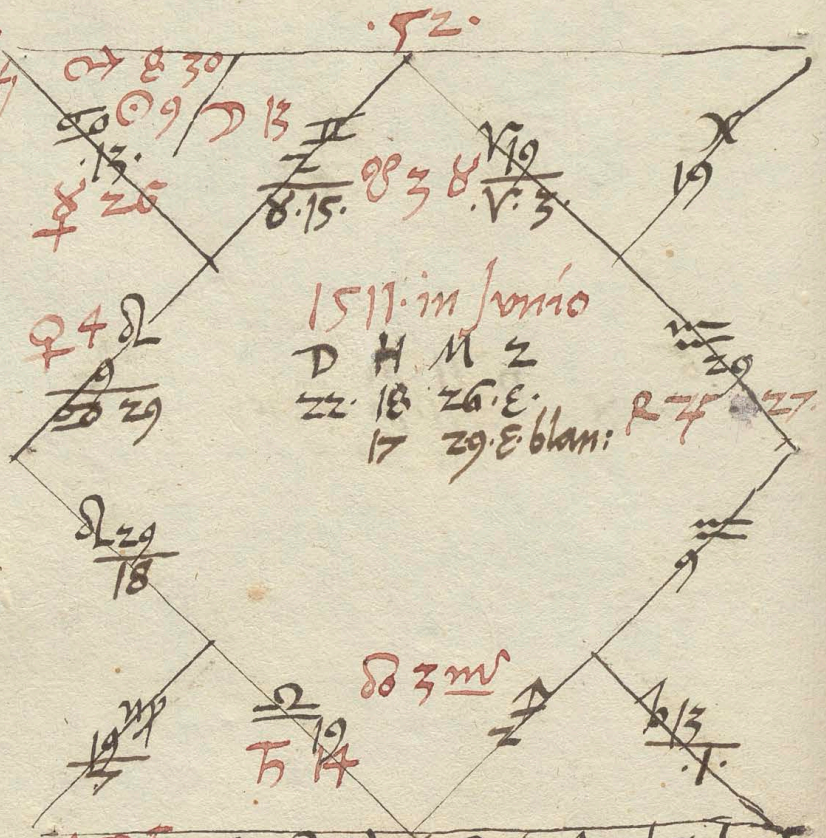 .52.
♂ 8 30
♋ ☉ 9 ☽ 13
.13.
☿ 26
♊
2
♉ .15.
☋ 3 ♉
♈ 19
.♈. 3.
♓
19
1511. in Junio
D H M Z
22. 18 26. E.
17 29. E. blan:
♀ 4 ♌
9
♋ 29
♒
29
R ♃ 27.
♌ 29
18
♒
9
☊ 3 ♏
♍
19
3
♎
19
♄ 14
♐
2
♑ 13
.1.